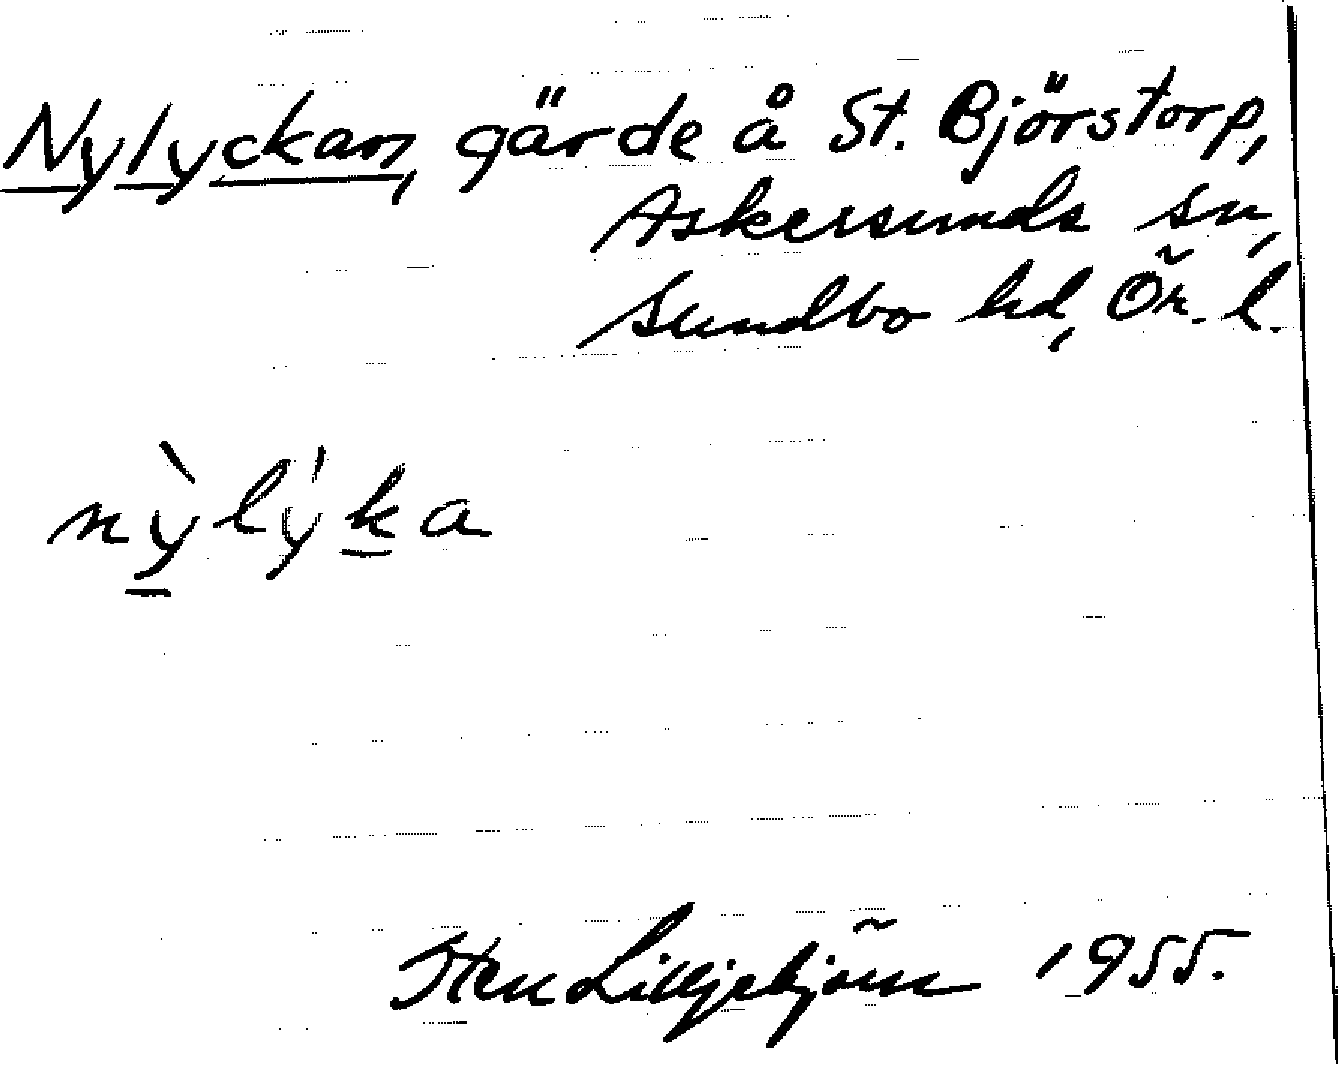 Nylyckan, gärde å St. Björstorp,
Askersunds sn,
Sundbo hd, Ör. l.
nỳlýka
Sten Lilljebjörn 1955.